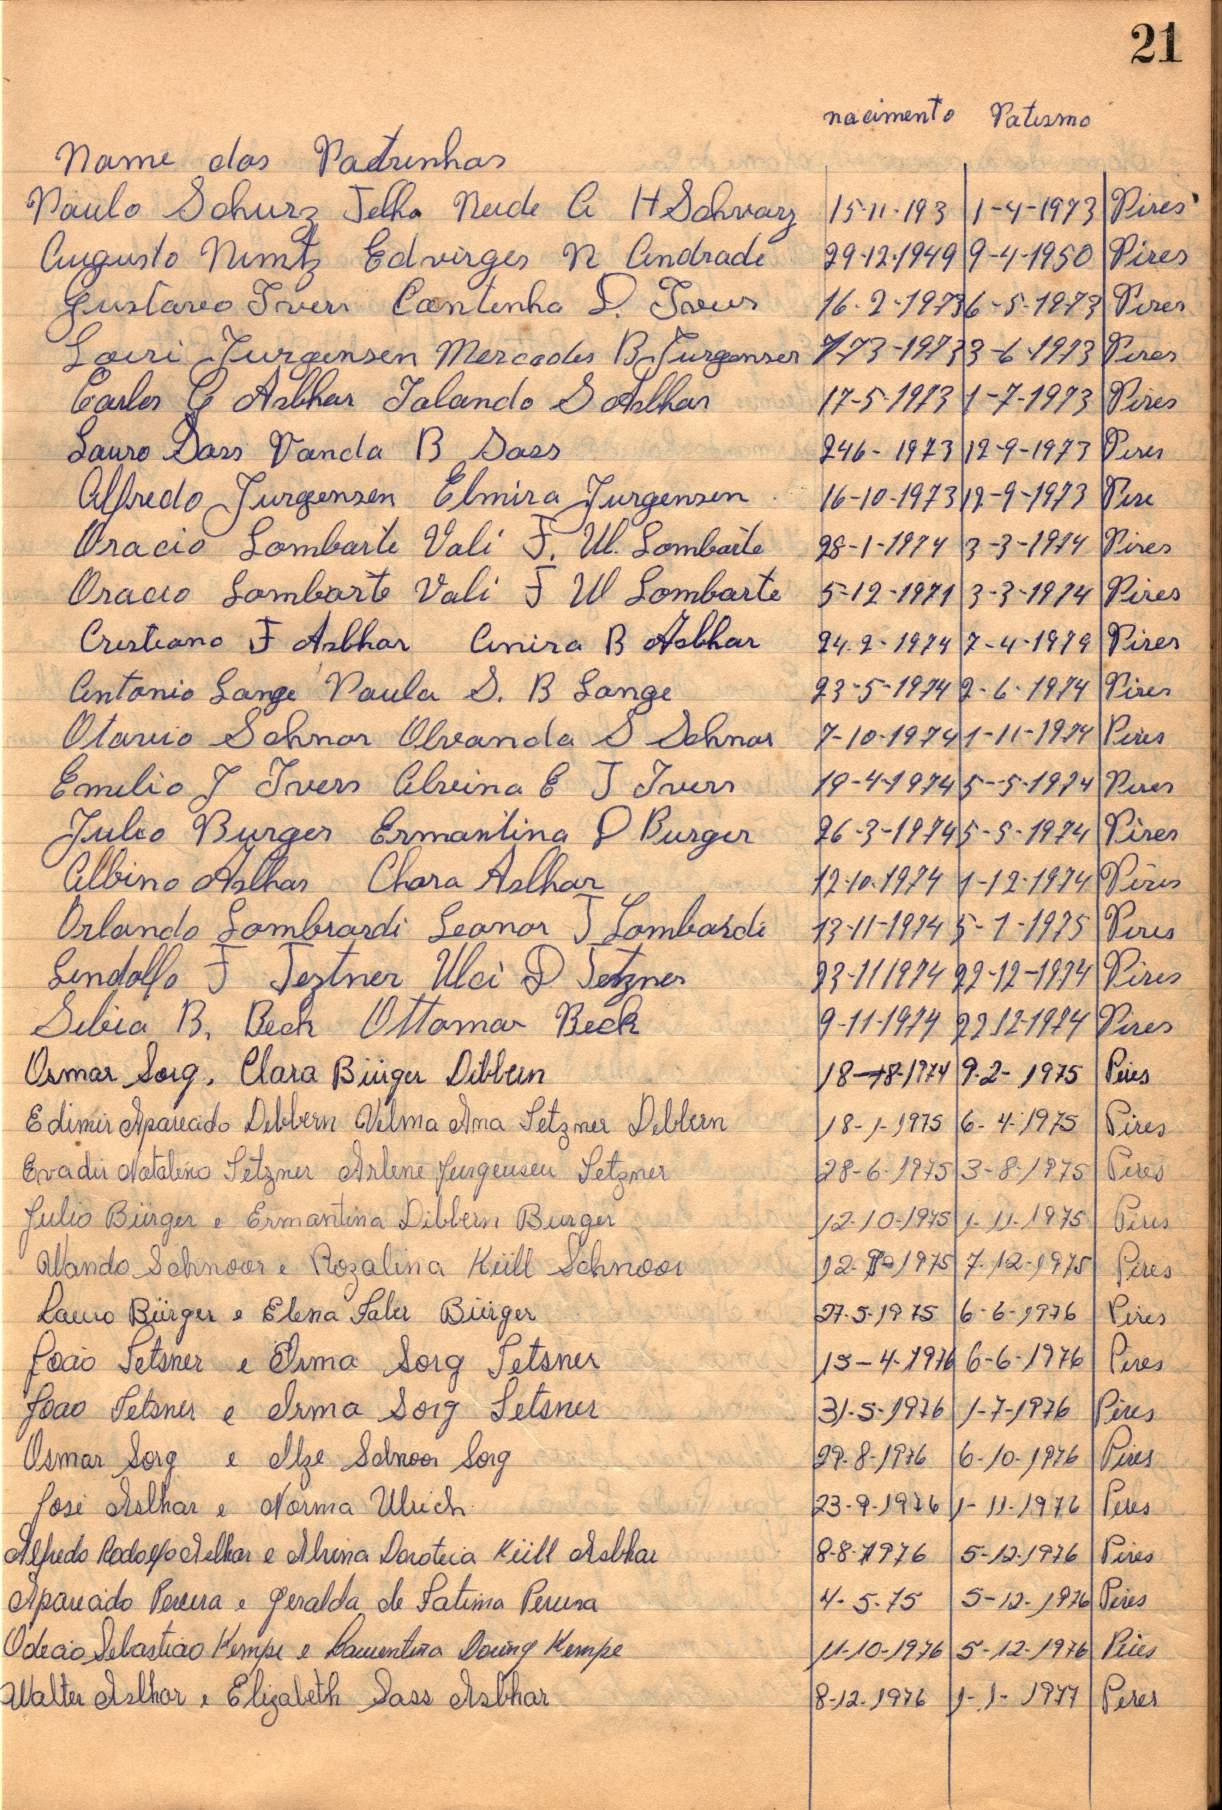 21
nacimento Patismo
Name dos Padrinhos
Paulo Schurz Telha Neide A H Schvarz 15-11-193 1-4-1973 Pires
Augusto Nimtz Edvirges N Andrade 29-12-1949 9-4-1950 Pires
Gustavo Ivers Cantenha D. Ivers 16-2-1973 6-5-1973 Pires
Loiri Jurgensen Mercedes B. Jurgenser 1973 3-6-1973 Pires
Carlos G Asbhar Jalando S Asbhar 17-5-1973 1-7-1973 Pires
Lauro Sass Vanda B Sass 246-1973 12-9-1973 Pires
Alfredo Jurgensen Elmira Jurgensen 16-10-1973 12-9-1973 Pire
Oracio Lombarte Vali F. W. Lombarte 28-1-1974 3-3-1974 Pires
Oracio Lombarte Vali F W Lombarte 5-12-1971 3-3-1974 Pires
Cristiano F Asbhar Anira B Asbhar 24-2-1974 7-4-1974 Pires
Antonio Lange Paula S. B Lange 23-5-1974 2-6-1974 Pires
Otavio Schnor Olvanda S Schnor 7-10-1974 1-11-1974 Pires
Emilio J Ivers Alvina E J Ivers 19-4-1974 5-5-1974 Pires
Julio Burger Ermantina D Burger 26-3-1974 5-5-1974 Pires
Albino Aslhar Chara Aslhar 12-10-1974 1-12-1974 Pires
Orlando Lombrardi Leonor J Lombardi 13-11-1974 5-1-1975 Pires
Lindolfo F Teztner Ulci D Tetzner 23-11 1974 22-12-1974 Pires
Silvia B. Beck Ottomar Beck 9-11-1974 22 12-1974 Pires
Osmar Sorg, Clara Bürger Dibbern 18-8-1974 9-2-1975 Pires
Edimir Aparecido Dibbern Vilma Ana Tetzner Dibbern 18-1-1975 6-4-1975 Pires
Evadir Natalino Tetzner Arlene Jurgensen Tetzner 28-6-1975 3-8-1975 Pires
Julio Bürger e Ermantina Dibbern Burger 12-10-1975 1-11-1975 Pires
Wando Schnoor e RozalinaKüll Schnoor 1975 7-12-1975 Pires
Lauro Bürger e Elena Faler Bürger 27-5-1975 6-6-1976 Pires
João Tetsner e Irma Sorg Tetsner 15-4-1976 6-6-1976 Pires
João Tetsner e Irma Sorg Tetsner 31-5-1976 1-7-1976 Pires
Osmar Sorg e Ilze Schnoor Sorg 29-8-1976 6-10-1976 Pires
José Aslhar e Norma Ulrich 23-9-1976 1-11-1976 Pires
Alfredo Rodolfo Aslhar e Alvina Doroteia Küll Asbhar 8-8-1976 5-12-1976 Pires
Aparecido Pereira e Geralda de Fatima Pereira 4-5-75 5-12-1976 Pires
Odecio Sebastião Kempe e Laurentina Doring Kempe 11-10-1976 5-12-1976 Pires
Walter Aslhar e Elizabeth Sass Asbhar 8-12-1976 1-1-1977 Peres